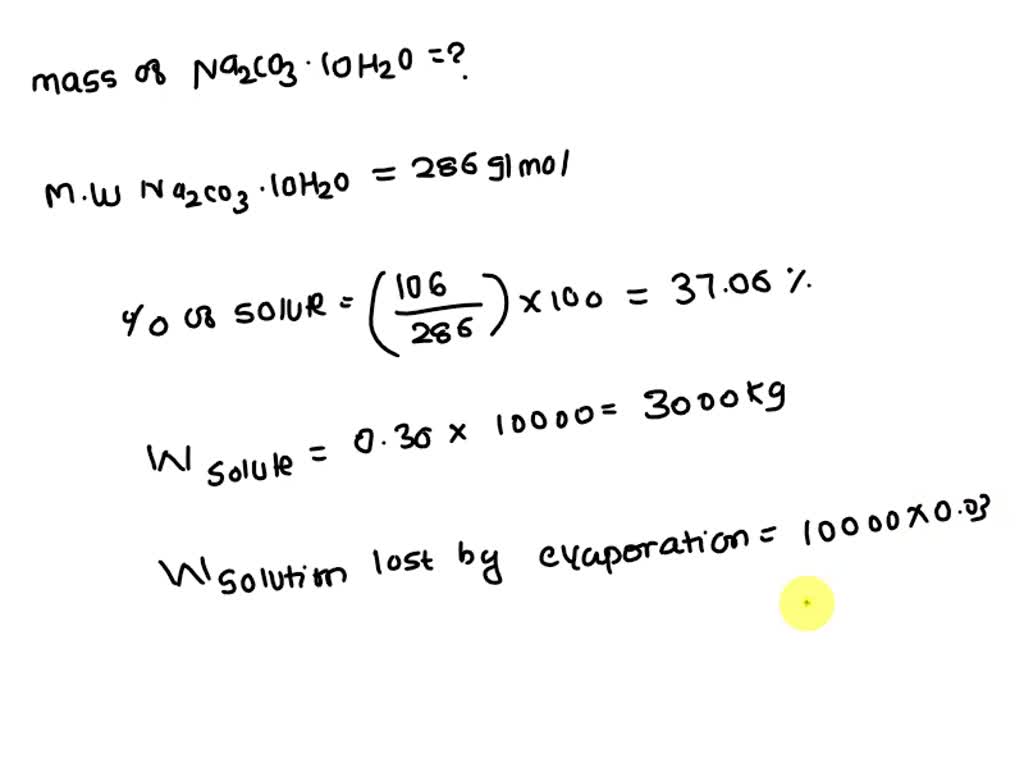 mass of Na2CO3·10H2O=?
M.W Na2CO3·10H2O = 286 g/mol
% of solute = (106/286) × 100 = 37.06 %
W solute = 0.30 × 10000 = 3000kg
W solution lost by evaporation = 10000×0.03